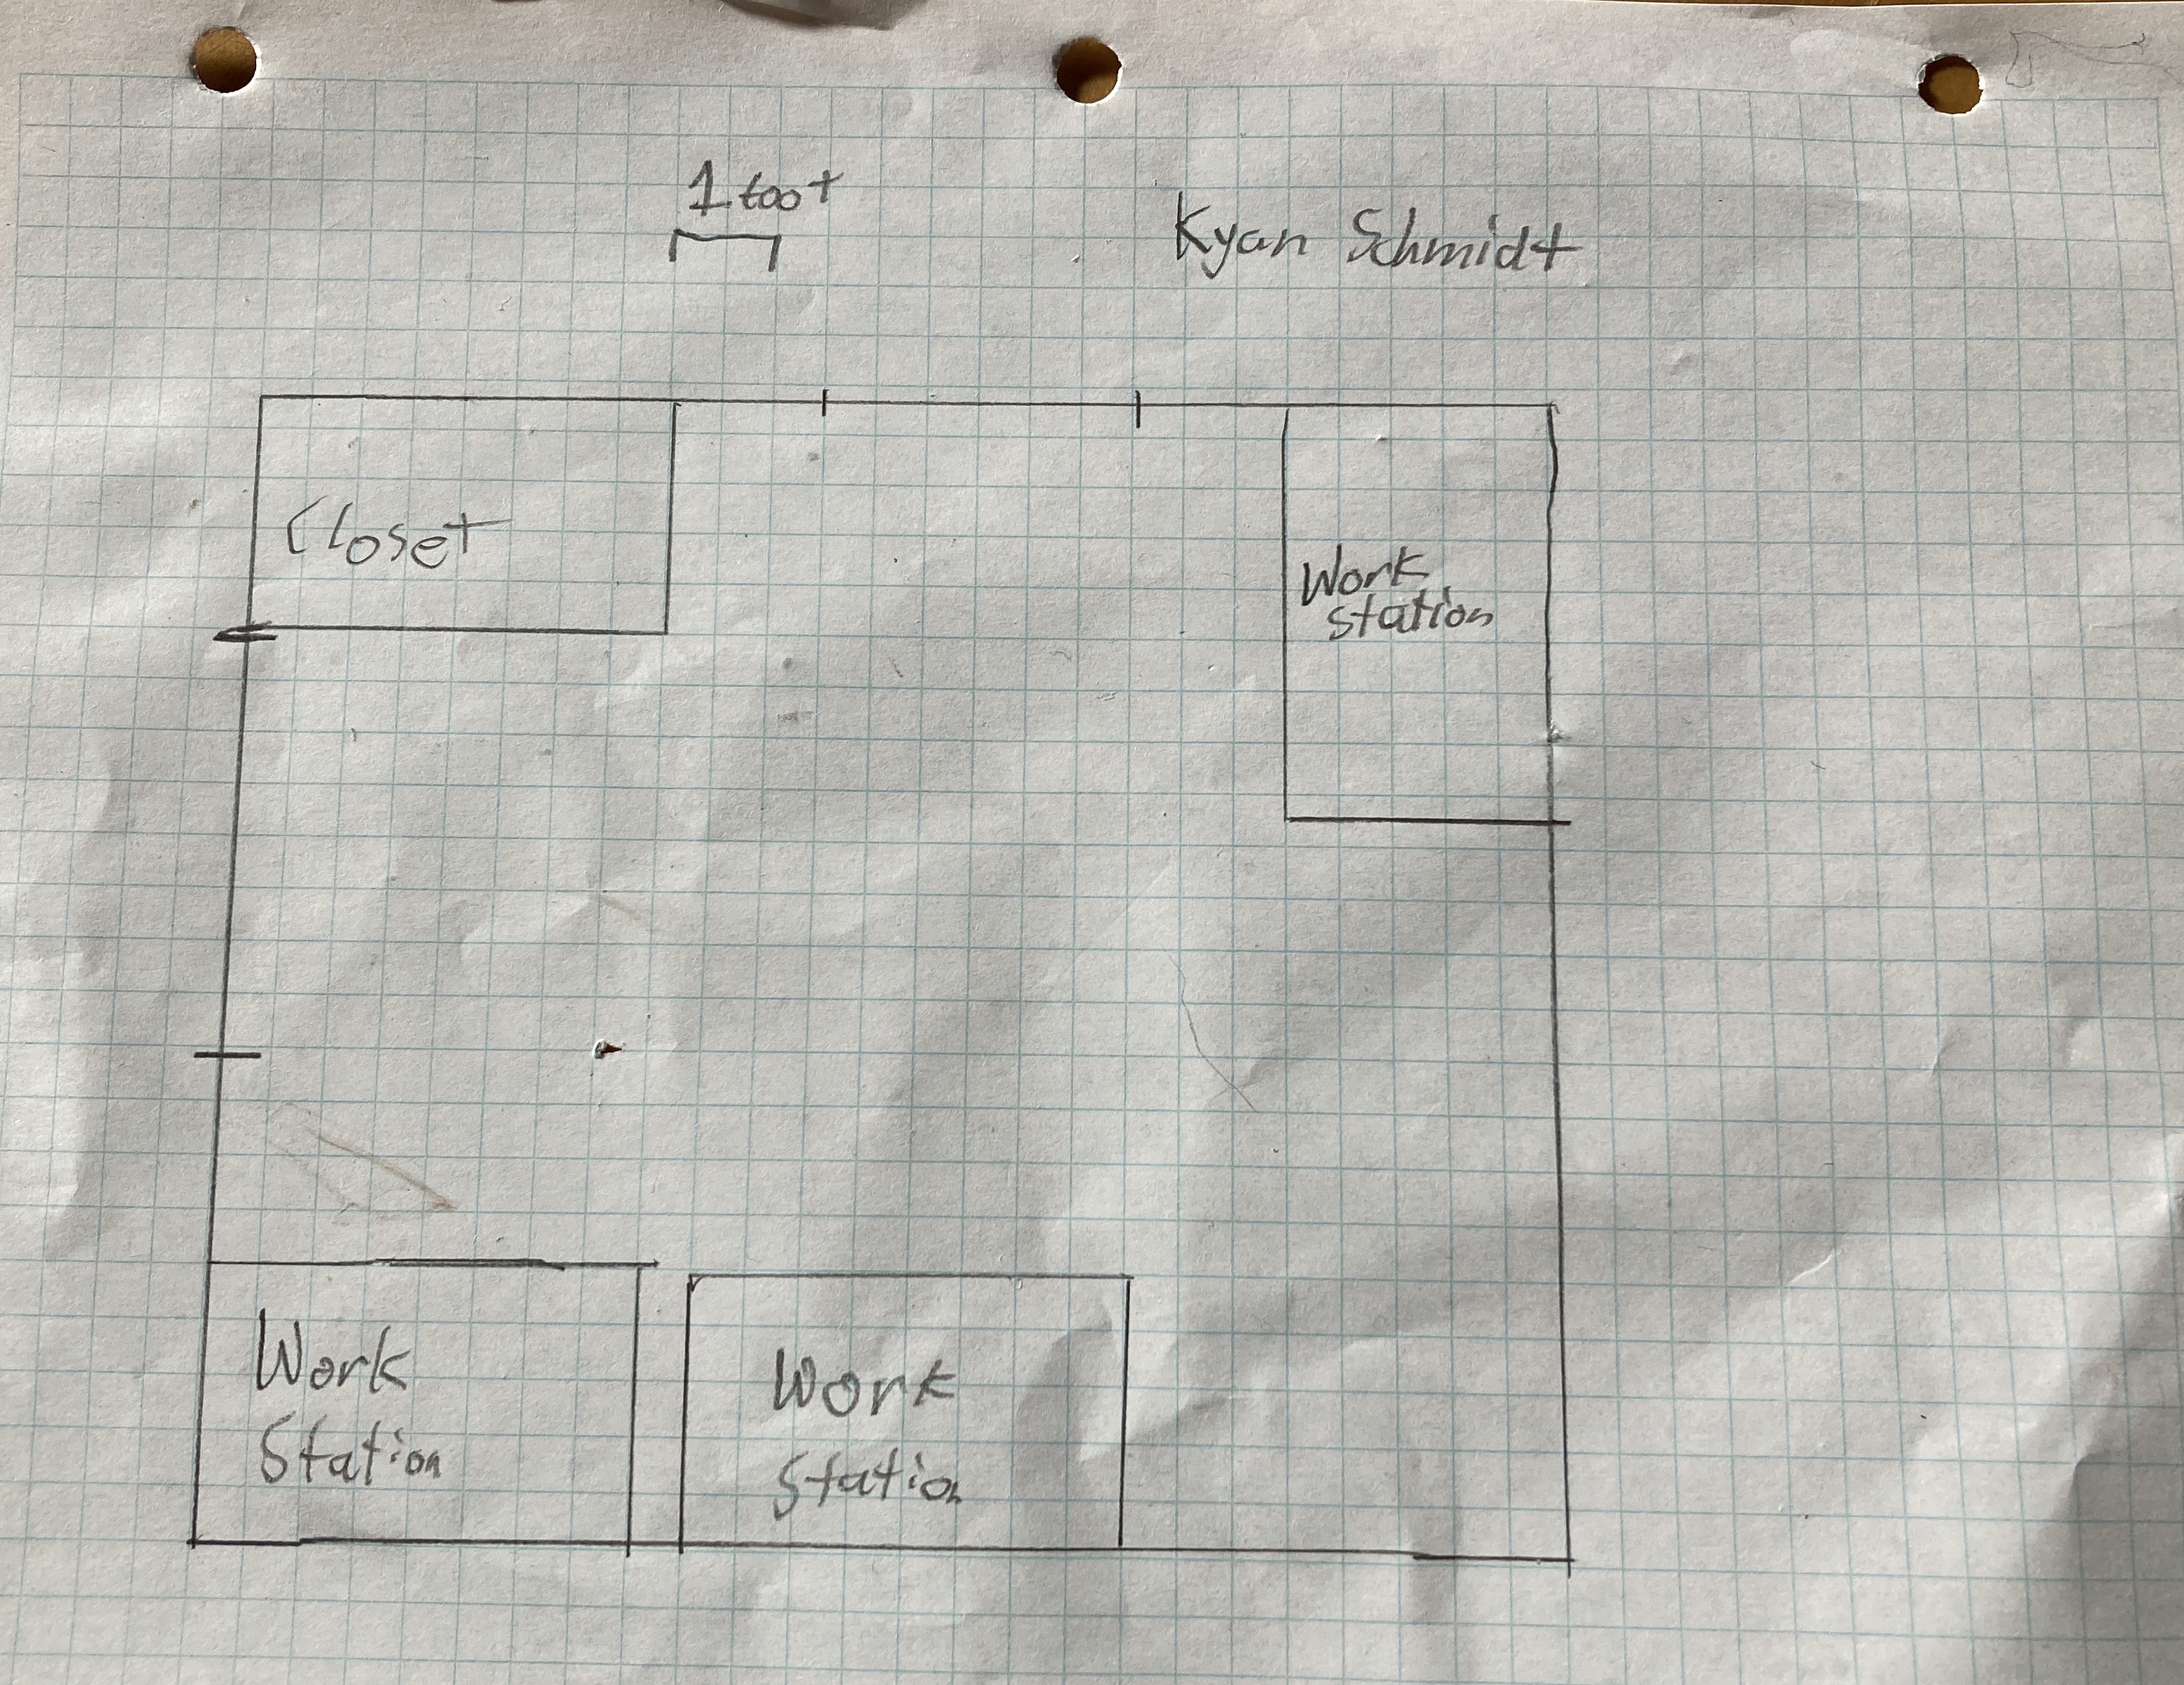 1 foot
Kyan Schmidt
Closet
Work
station
Work
Station
Work
Station